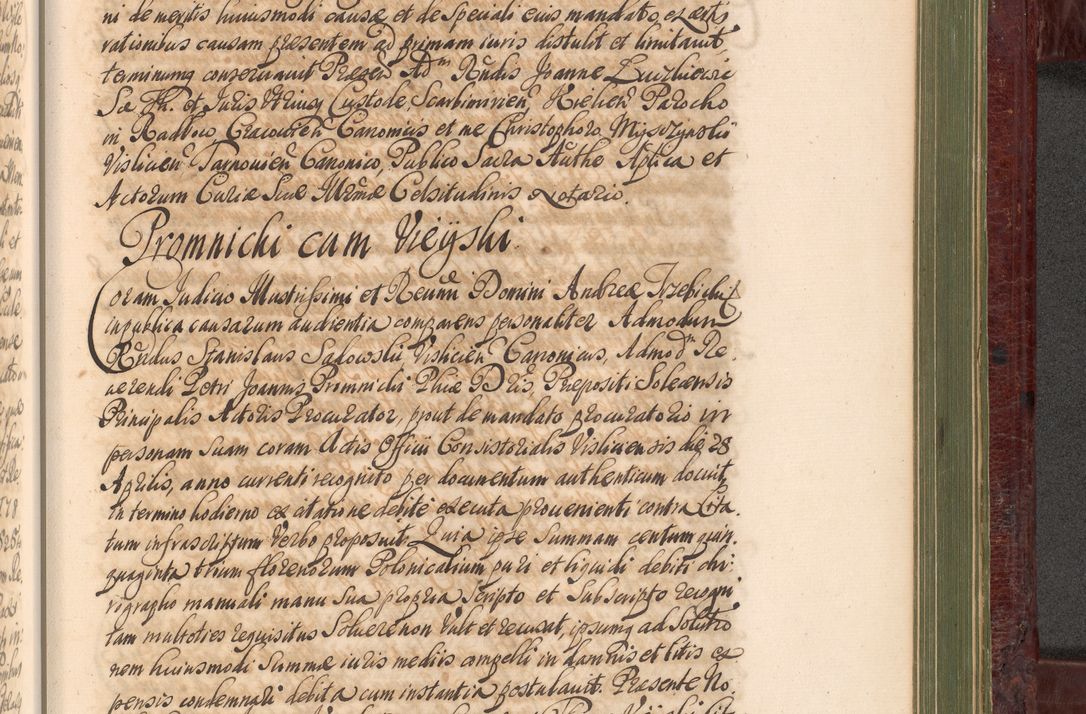 ni de meritis huiusmodi causæ et de speciali eius mandato, ex certis
rationibus causam præsentem ad primam iuris distulit et limitauit
terminumq conseruauit Præsen Adm Rndis Joanne
et Juris Vtriusq Custode Scarbimirien, Kielcen Parocho
in Radlow, Cracouien Canonicis et me Christophoro Mysczynski
Vislicien Tarnouien Canonico, Publico Sacra Authe Aplica et
Actorum Curiæ Suæ Illrmæ Celsitudinis Notario.
Promnicki cum Vieyski.
Coram Judicio Illustrissimi et Reuмi Domini Andreæ Trzebicki
in publica causarum audientia comparens personaliter Admodum
Rndus Stanislaus Sadowski Vislicien Canonicus, Admodm Re
uerendi Petri Joannis Promnicki Phiæ Dris, Præpositi Solcensis
Principalis Actoris Procurator, prout de mandato procuratorio in
personam suam coram Actis Officii Consistorialis Visliciensis die 28
Aprilis, anno currenti recognito per documentum authenticum docuit,
in termino hodierno ex citatione debite executa prouenienti contra Cita
tum infrascriptum Verbo proposuit. Quia ipse Summam centum quin
quaginta trium florenorum Polonicalium puri et liquidi debiti chi
rographo manuali manu sua propria scripto et subscripto recogni
tam multoties requisitus soluere non vult et recusat, ipsumq ad solutio
nem huiusmodi Summæ iuris mediis compelli in damnis et litis ex
pensis condemnari debita cum instantia postulauit. Præsente No